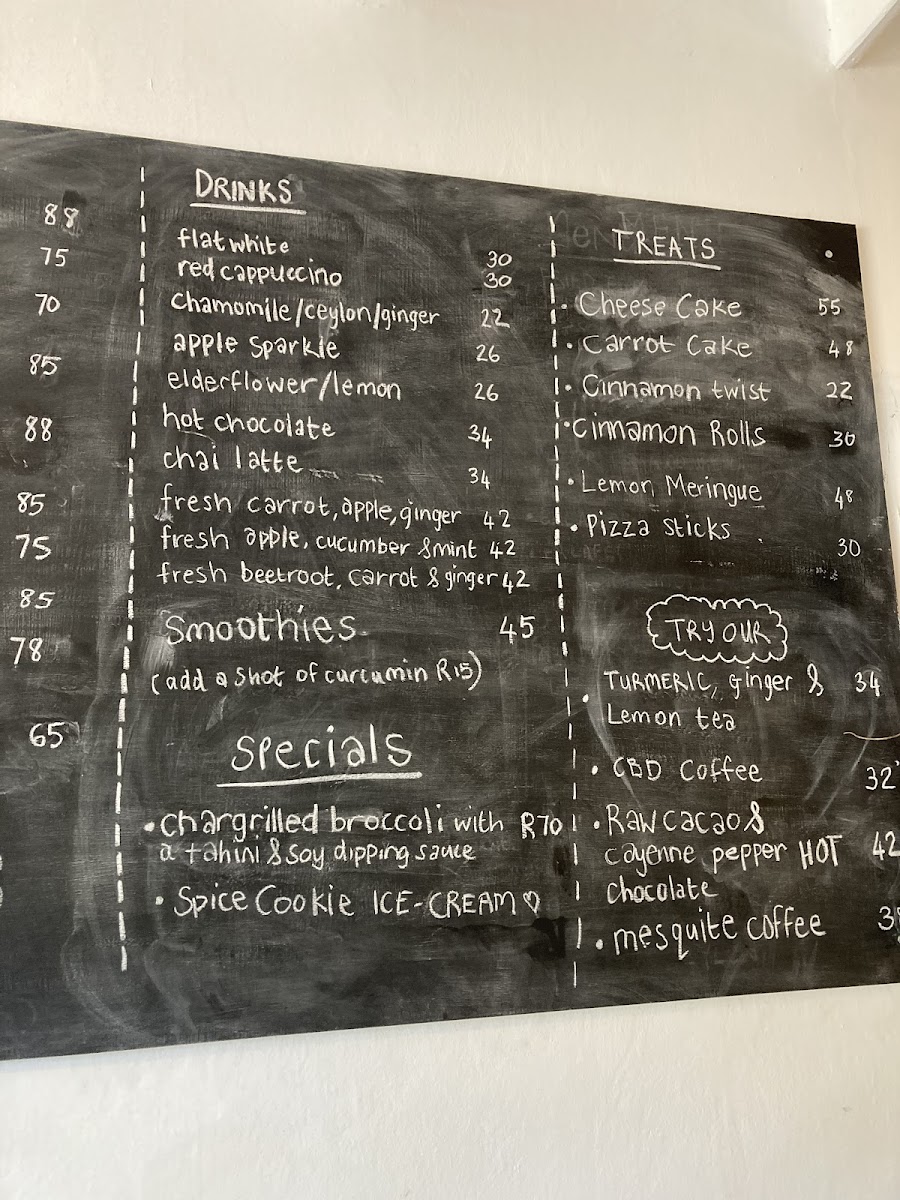 88
75
70
85
88
85
75
85
78
65
DRINKS
flat white 30
red cappuccino 30
chamomile/ceylon/ginger 22
apple sparkle 26
elderflower/lemon 26
hot chocolate 34
chai latte 34
fresh carrot, apple, ginger 42
fresh apple, cucumber & mint 42
fresh beetroot, carrot & ginger 42
Smoothies 45
(add a shot of curcumin R15)
Specials
• chargrilled broccoli with R70
a tahini & soy dipping sauce
• Spice Cookie ICE-CREAM ♡
TREATS
• Cheese Cake 55
• Carrot Cake 48
• Cinnamon twist 22
• Cinnamon Rolls 30
• Lemon Meringue 48
• Pizza sticks 30
TRY OUR
• TURMERIC, ginger & 34
Lemon tea
• CBD Coffee 32
• Raw cacao &
cayenne pepper HOT 42
chocolate
• mesquite coffee